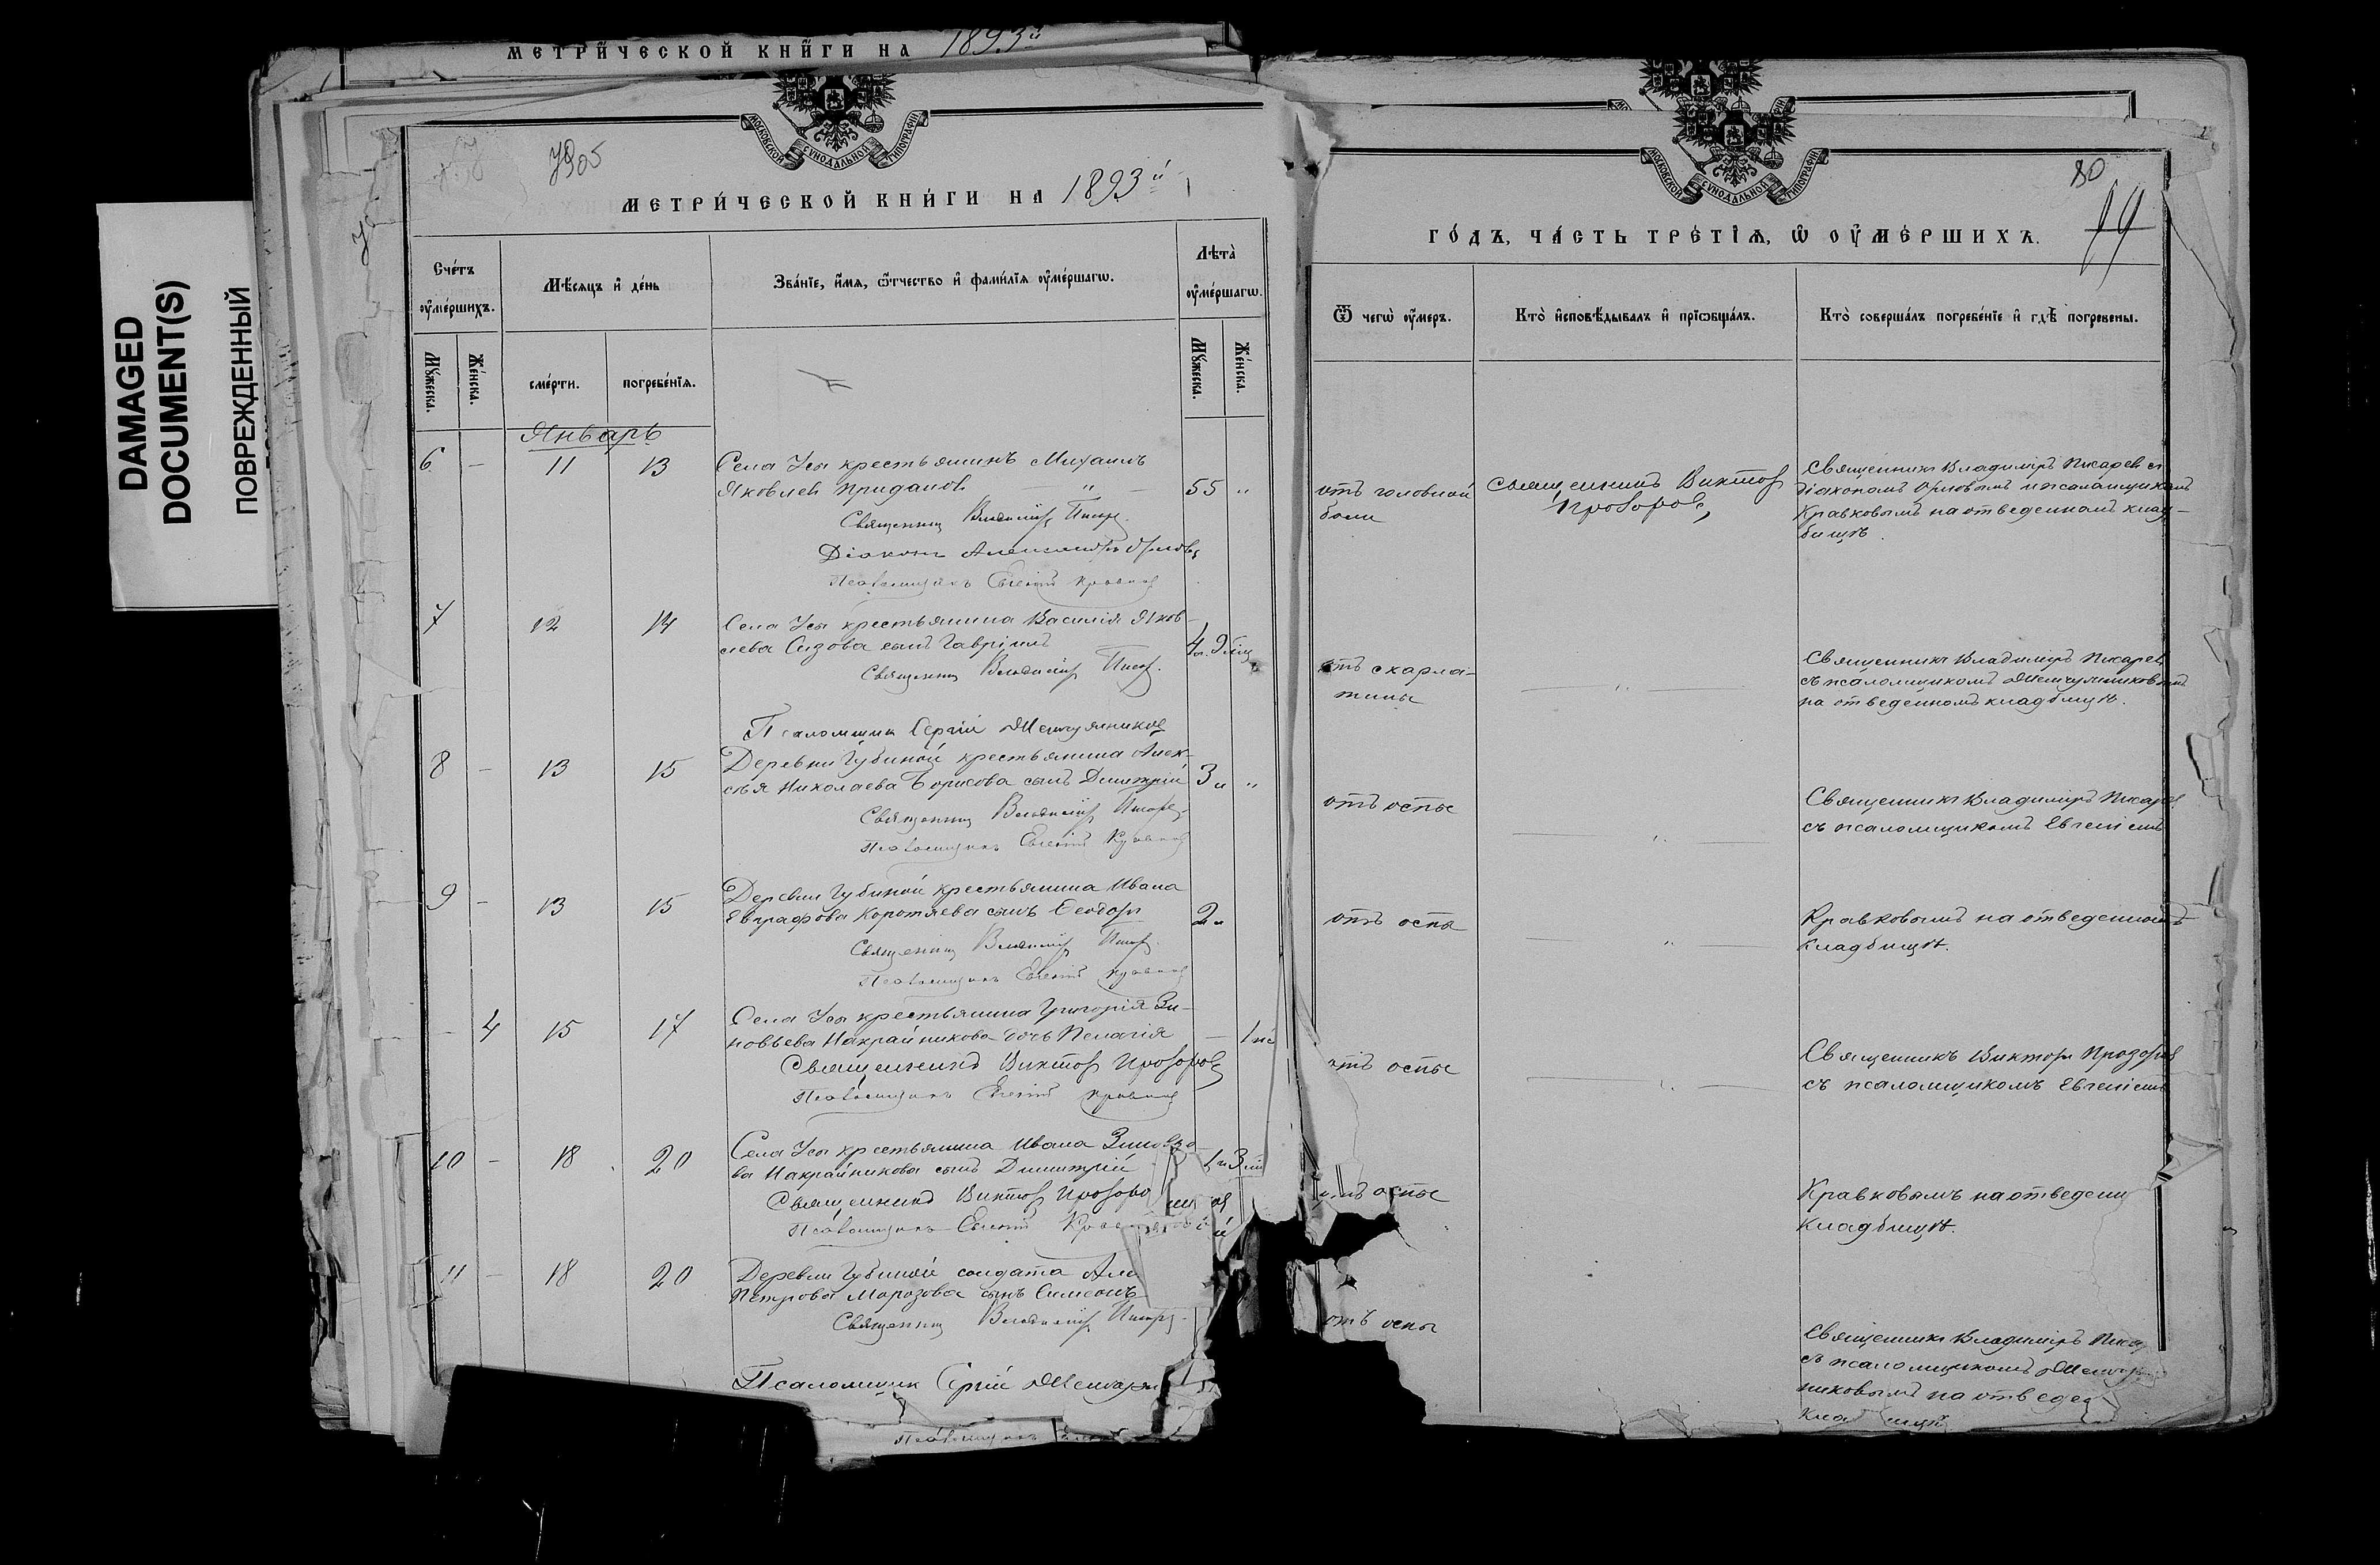 DAMAGED
DOCUMENT(S)
ПОВРЕЖДЕННЫЙ
МЕТРИ́ЧЕСКОЙ КНИ́ГИ НА 1893й
МОСКОВСКОЙ СУНОДАЛЬНОЙ ТИПОГРАФІИ
МЕТРИ́ЧЕСКОЙ КНИ́ГИ НА 1893й
Сче́тъ ᲂу҆ме́ршихъ.
Мѣ́сяцъ и҆ де́нь
Зва́нїе, и҆́мѧ, ѻ҆́тчество и҆ фами́лїѧ ᲂу҆ме́ршагѡ.
Лѣта̀ ᲂу҆ме́ршагѡ.
Мꙋ́жеска.
Же́нска.
сме́рти.
погребе́нїѧ.
Мꙋ́жеска.
Же́нска.
Январь
6 - 11 13 Села Усы крестьянинъ Михаилъ
Яковлев Приданов 55 "
Священник Владимір Писарев
Діаконъ Александръ Орловъ
Псаломщикъ Евгеній Кравков
7 12 14 Села Усы крестьянина Василія Яков-
лева Сизова сынъ Гавріилъ 4 г. 9 мѣс
Священник Владимір Писарев
Псаломщик Сергій
8 - 13 15 Деревни Губиной крестьянина Алек-
сѣя Николаева Борисова сынъ Димитрій 3 "
Священник Владимір Писарев
Псаломщикъ Евгеній Кравков
9 - 13 15 Деревни Губиной крестьянина Ивана
Евграфова Коротяева сынъ Ѳеодоръ 2
Священник Владимір Писарев
Псаломщикъ Евгеній Кравков
- 4 15 17 Села Усы крестьянина Григорія Зи-
новьева Накрайникова дочь Пелагія - 1
Священникъ Виктор Прозоров
Псаломщикъ Евгеній Кравков
10 - 18 20 Села Усы крестьянина Ивана
ва Накрайникова сынъ Димитрій 1 3
Священникъ Виктор
Псаломщикъ Евгеній
11 - 18 20 Деревни Губиной солдата
Петрова Морозова сынъ Симеонъ
Священник Владимір Писарев
Псаломщик Сергій
Псаломщикъ
МОСКОВСКОЙ СУНОДАЛЬНОЙ ТИПОГРАФІИ
80
ГО́ДЪ, ЧА́СТЬ ТРЕ́ТЇѦ, Ѡ҆ ᲂУ҆МЕ́РШИХЪ.
Ѿ чегѡ̀ ᲂу҆́меръ.
Кто̀ и҆сповѣ́дывалъ и҆ прїѡбща́лъ.
Кто̀ соверша́лъ погребе́нїе и҆ гдѣ̀ погребены.
отъ головной
боли
Священникъ Виктор
Прозоров
Священникъ Владиміръ Писарев съ
діакономъ Орловымъ и псаломщикомъ
Кравковымъ на отведенномъ клад-
бищѣ.
отъ скарла-
тины
"
Священникъ Владиміръ Писарев
съ псаломщикомъ
на отведенномъ кладбищѣ.
отъ оспы
"
Священникъ Владиміръ Писарев
съ псаломщикомъ Евгеніемъ
отъ оспы
"
Кравковымъ на отведенномъ
кладбищѣ.
отъ оспы
"
Священникъ Викторъ Прозоров
съ псаломщикомъ Евгеніемъ
отъ оспы
Кравковымъ на отведенн
кладбищѣ.
отъ оспы
Священникъ Владиміръ
съ псаломщикомъ
никовымъ на отведен